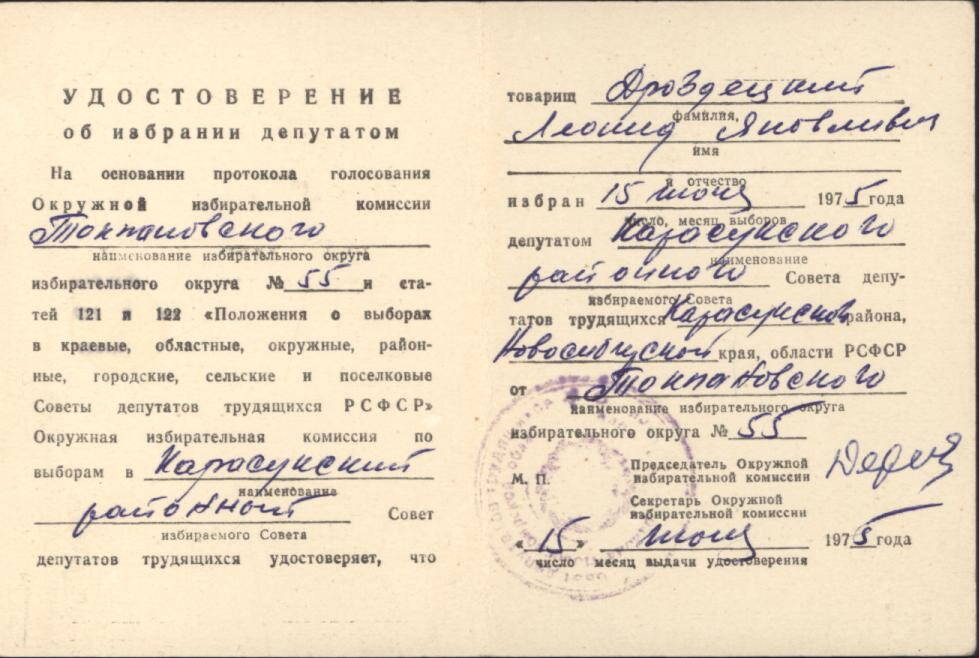 УДОСТОВЕРЕНИЕ
об избрании депутатом
На основании протокола голосования
Окружной избирательной комиссии
Токпановского
наименование избирательного округа
избирательного округа № 55 и ста-
тей 121 и 122 «Положения о выборах
в краевые, областные, окружные, район-
ные, городские, сельские и поселковые
Советы депутатов трудящихся РСФСР»
Окружная избирательная комиссия по
выборам в Карасукский
наименование
районный Совет
избираемого Совета
депутатов трудящихся удостоверяет, что
товарищ Дроздецкий
фамилия,
Леонид Яковлевич
имя
и отчество
избран 15 июня 1975 года
число, месяц выборов
депутатом Карасукского
наименование
районного Совета депу-
избираемого Совета
татов трудящихся Карасукского района,
Новосибирской края, области РСФСР
от Токпановского
наименование избирательного округа
избирательного округа № 55
М. П.
Председатель Окружной
избирательной комиссии
Секретарь Окружной
избирательной комиссии
«15» июня 1975 года
число месяц выдачи удостоверения